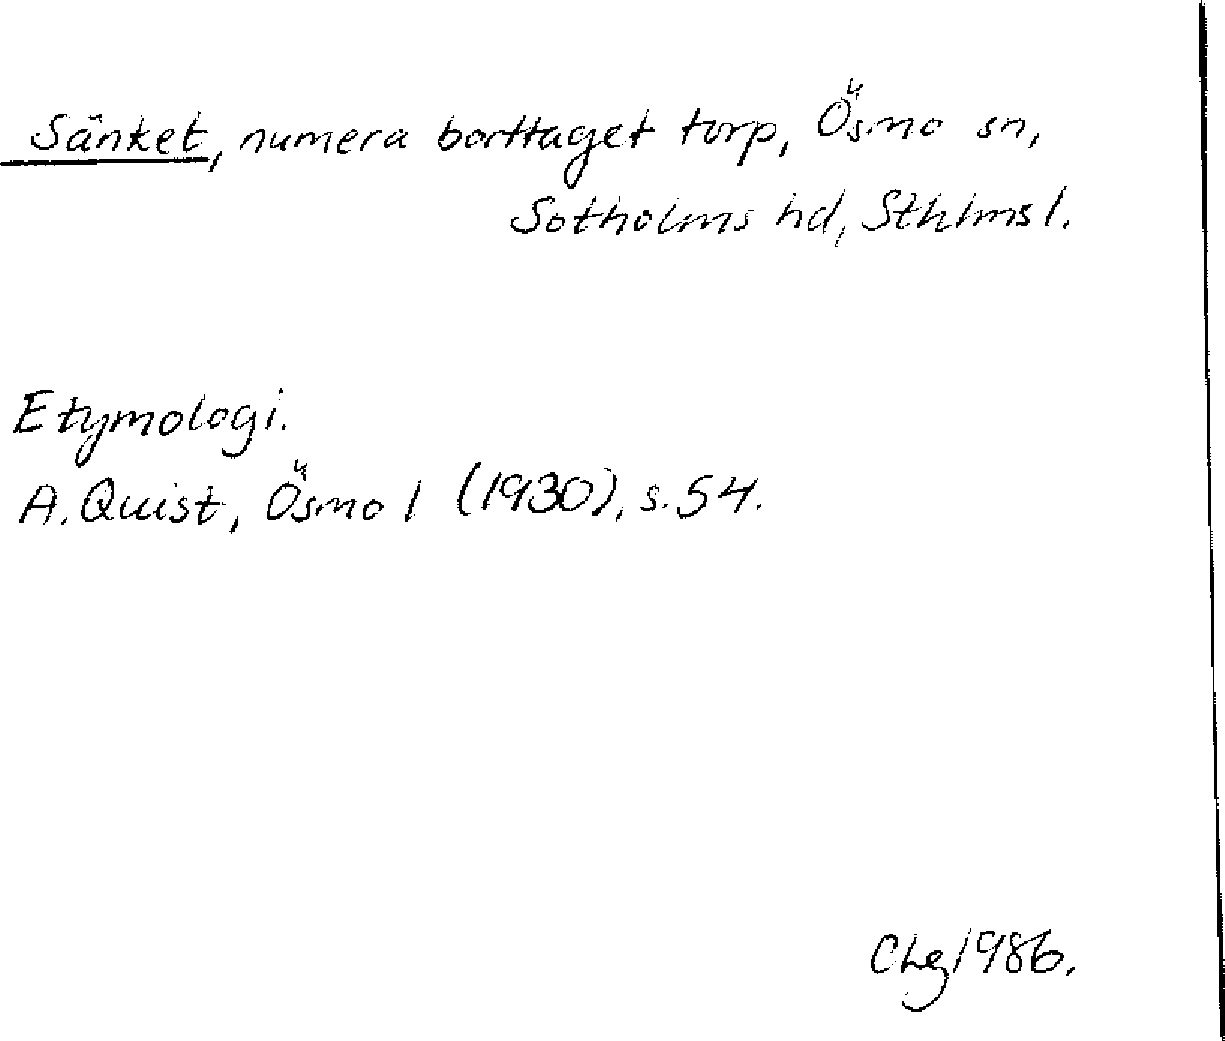 Sänket, numera borttaget torp, Ösmo sn,
Sotholms hd, Sthlms l.
Etymologi.
A. Quist, Ösmo I (1930), s. 54.
CLg 1986.